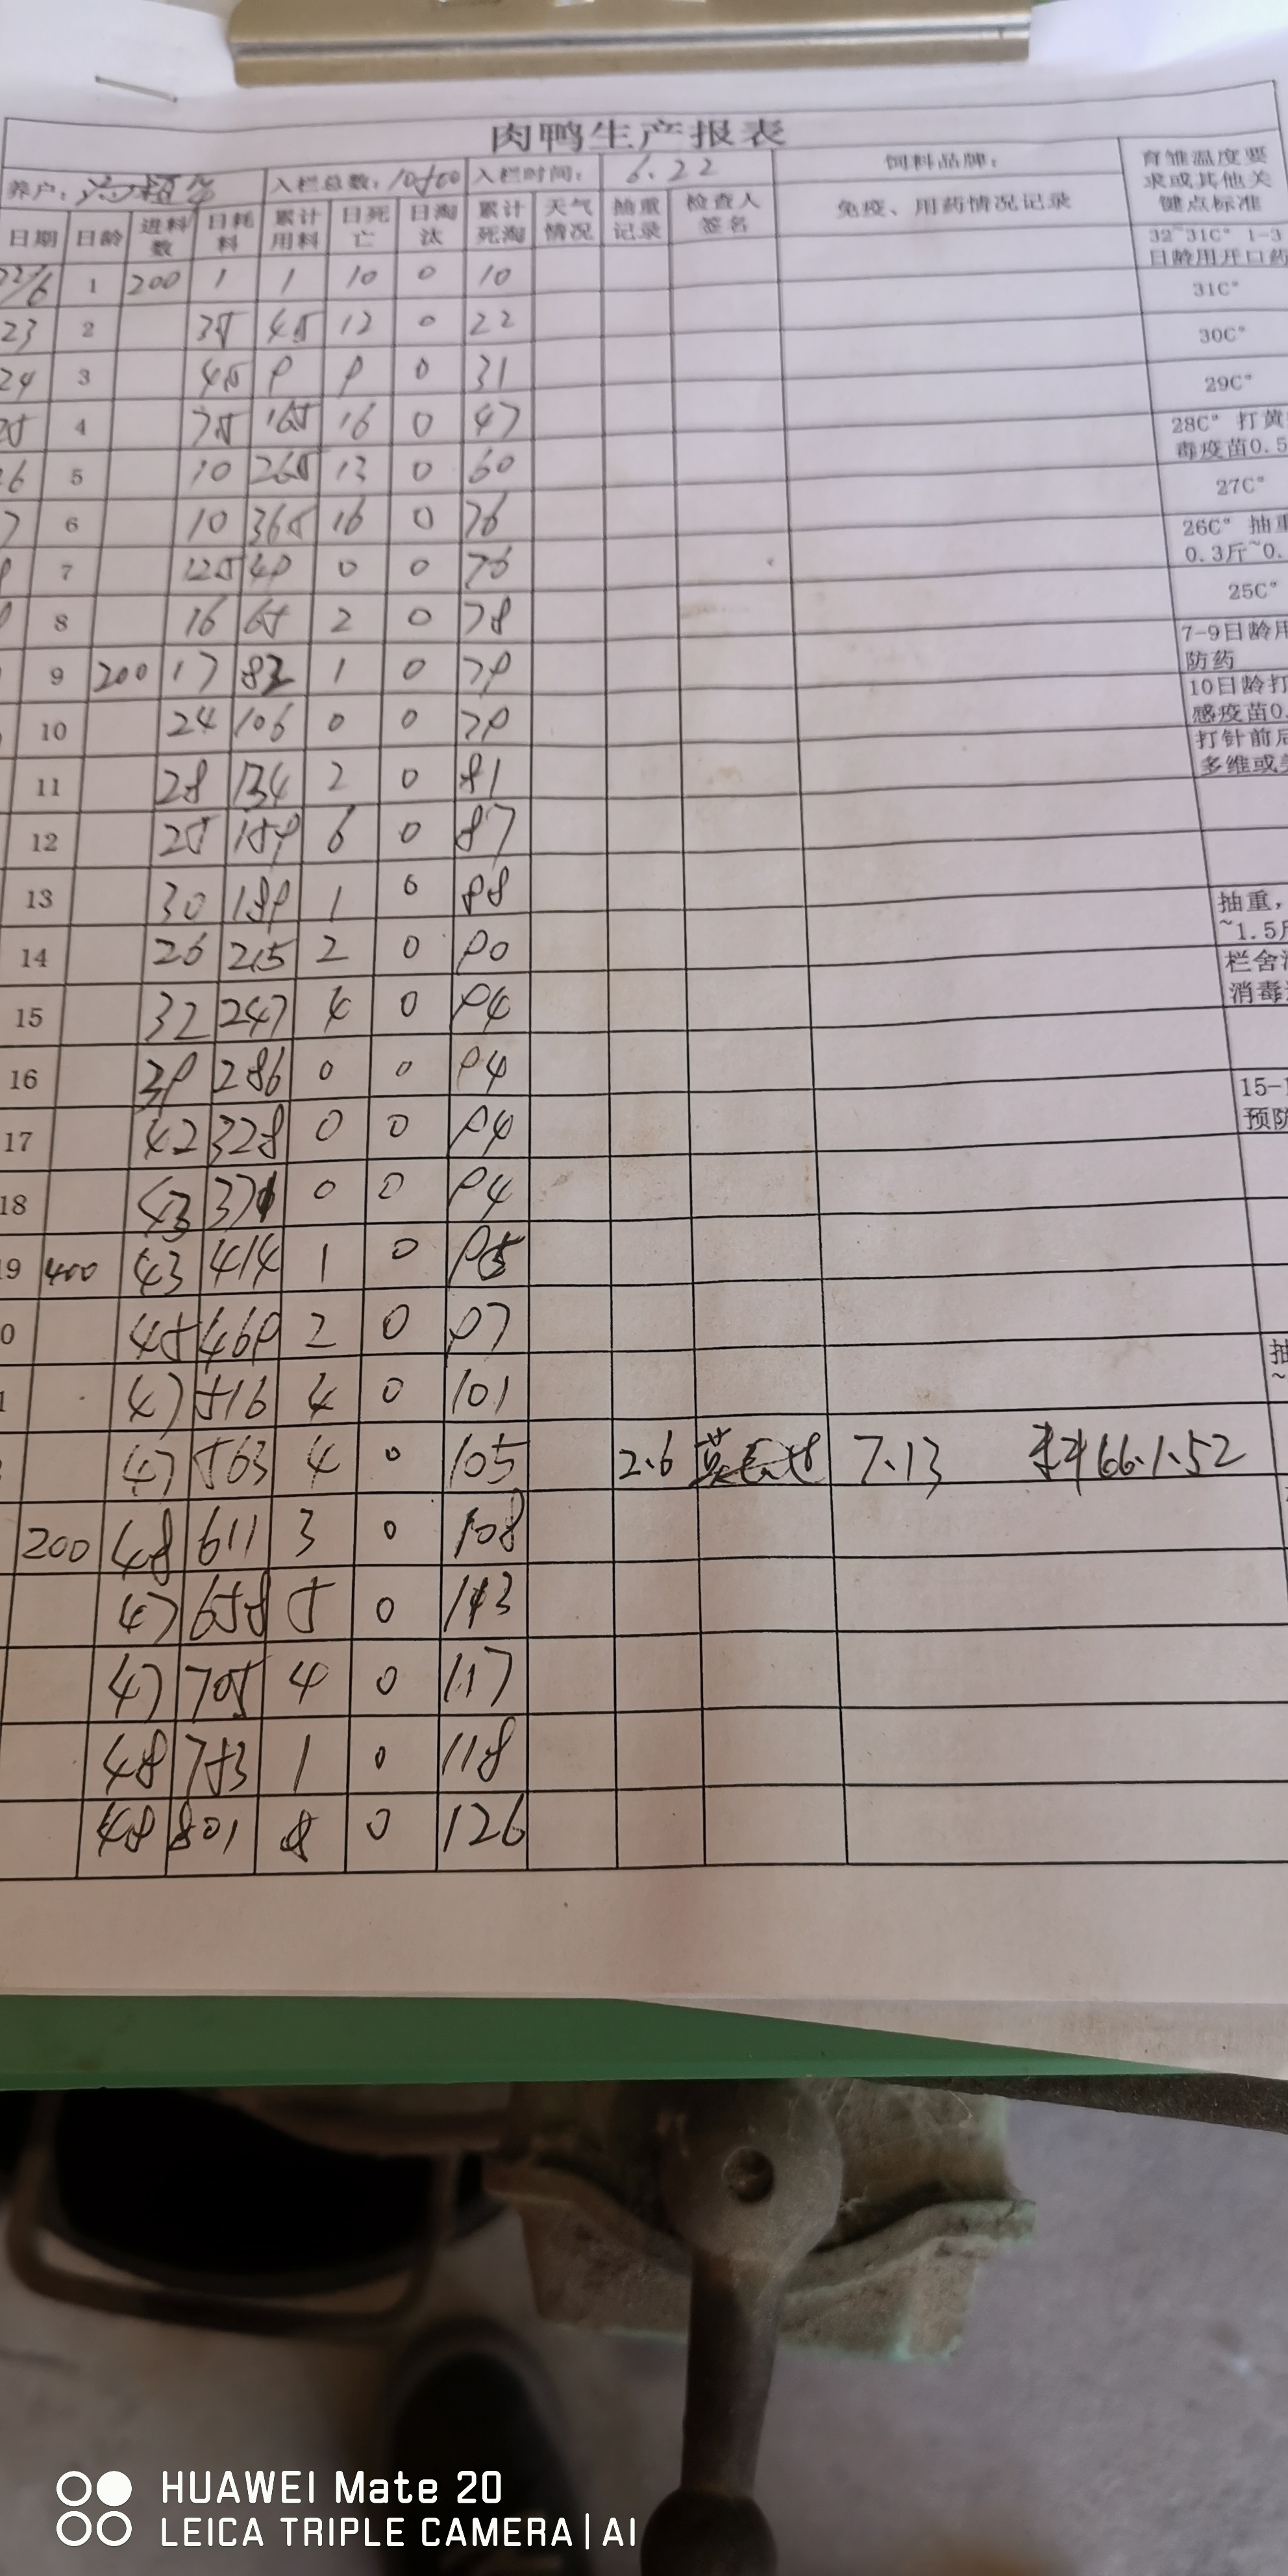 肉鸭生产报表
养户: 入栏总数: 10500 入栏时间: 6.22 饲料品牌: 育雏温度要求或其他关键点标准
日期 日龄 进料数 日耗料 累计用料 日死亡 日淘汰 累计死淘 天气情况 抽重记录 检查人签名 免疫、用药情况记录
32~31C° 1-3日龄用开口药
22/6 1 200 1 1 10 0 10 31C°
23 2 35 45 12 0 22 30C°
24 3 45 9 9 0 31 29C°
25 4 75 165 16 0 47 28C° 打黄 毒疫苗0.5
26 5 10 265 13 0 60 27C°
7 6 10 365 16 0 76 26C° 抽重 0.3斤~0.
7 125 49 0 0 76 25C°
8 16 65 2 0 78 7-9日龄用 防药
9 200 17 82 1 0 79 10日龄打 感疫苗0.
10 24 106 0 0 79 打针前后 多维或
11 28 134 2 0 81
12 25 159 6 0 87
13 30 189 1 0 88 抽重, ~1.5斤
14 26 215 2 0 90 栏舍 消毒
15 32 247 4 0 94
16 39 286 0 0 94 15-1 预防
17 42 328 0 0 94
18 43 371 0 0 94
19 400 43 414 1 0 95
0 45 469 2 0 97 抽 ~
1 47 516 4 0 101
47 563 4 0 105 2.6 7.13 料66.1.52
200 48 611 3 0 108
47 658 5 0 113
47 705 4 0 117
48 753 1 0 118
48 801 8 0 126
HUAWEI Mate 20
LEICA TRIPLE CAMERA | AI